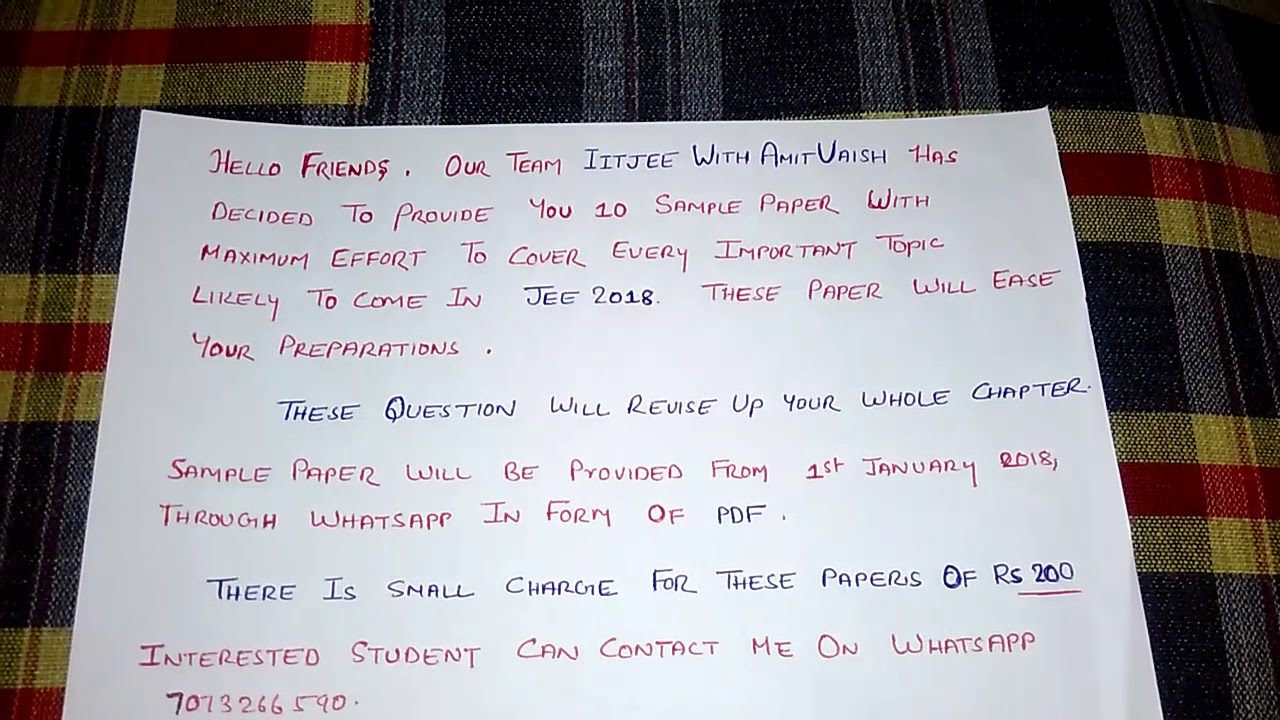 HELLO FRIENDS. OUR TEAM IITJEE WITH AMITVAISH HAS
DECIDED TO PROVIDE YOU 10 SAMPLE PAPER WITH
MAXIMUM EFFORT TO COVER EVERY IMPORTANT TOPIC
LIKELY TO COME IN JEE 2018. THESE PAPER WILL EASE
YOUR PREPARATIONS.
THESE QUESTION WILL REVISE UP YOUR WHOLE CHAPTER.
SAMPLE PAPER WILL BE PROVIDED FROM 1st JANUARY 2018,
THROUGH WHATSAPP IN FORM OF PDF.
THERE IS SMALL CHARGE FOR THESE PAPERS OF RS 200
INTERESTED STUDENT CAN CONTACT ME ON WHATSAPP
7073266590.